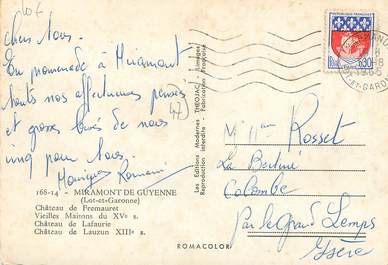 Chers tous -
En promenade à Miramont
toutes nos affectueuses pensées
et grosses bises de nous
cinq pour tous.
Monique Romain
168-14 - MIRAMONT DE GUYENNE
(Lot-et-Garonne)
Château de Fremauret
Vieilles Maisons du XVe s.
Château de Lafaurie
Château de Lauzun XIIIe s.
Les Editions Modernes "THEOJAC" Limoges
Reproduction interdite - Fabrication Française
ROMACOLOR
REPUBLIQUE FRANÇAISE
0,30
Rosset
La
Colombe
Par le Grand Lemps
Isère